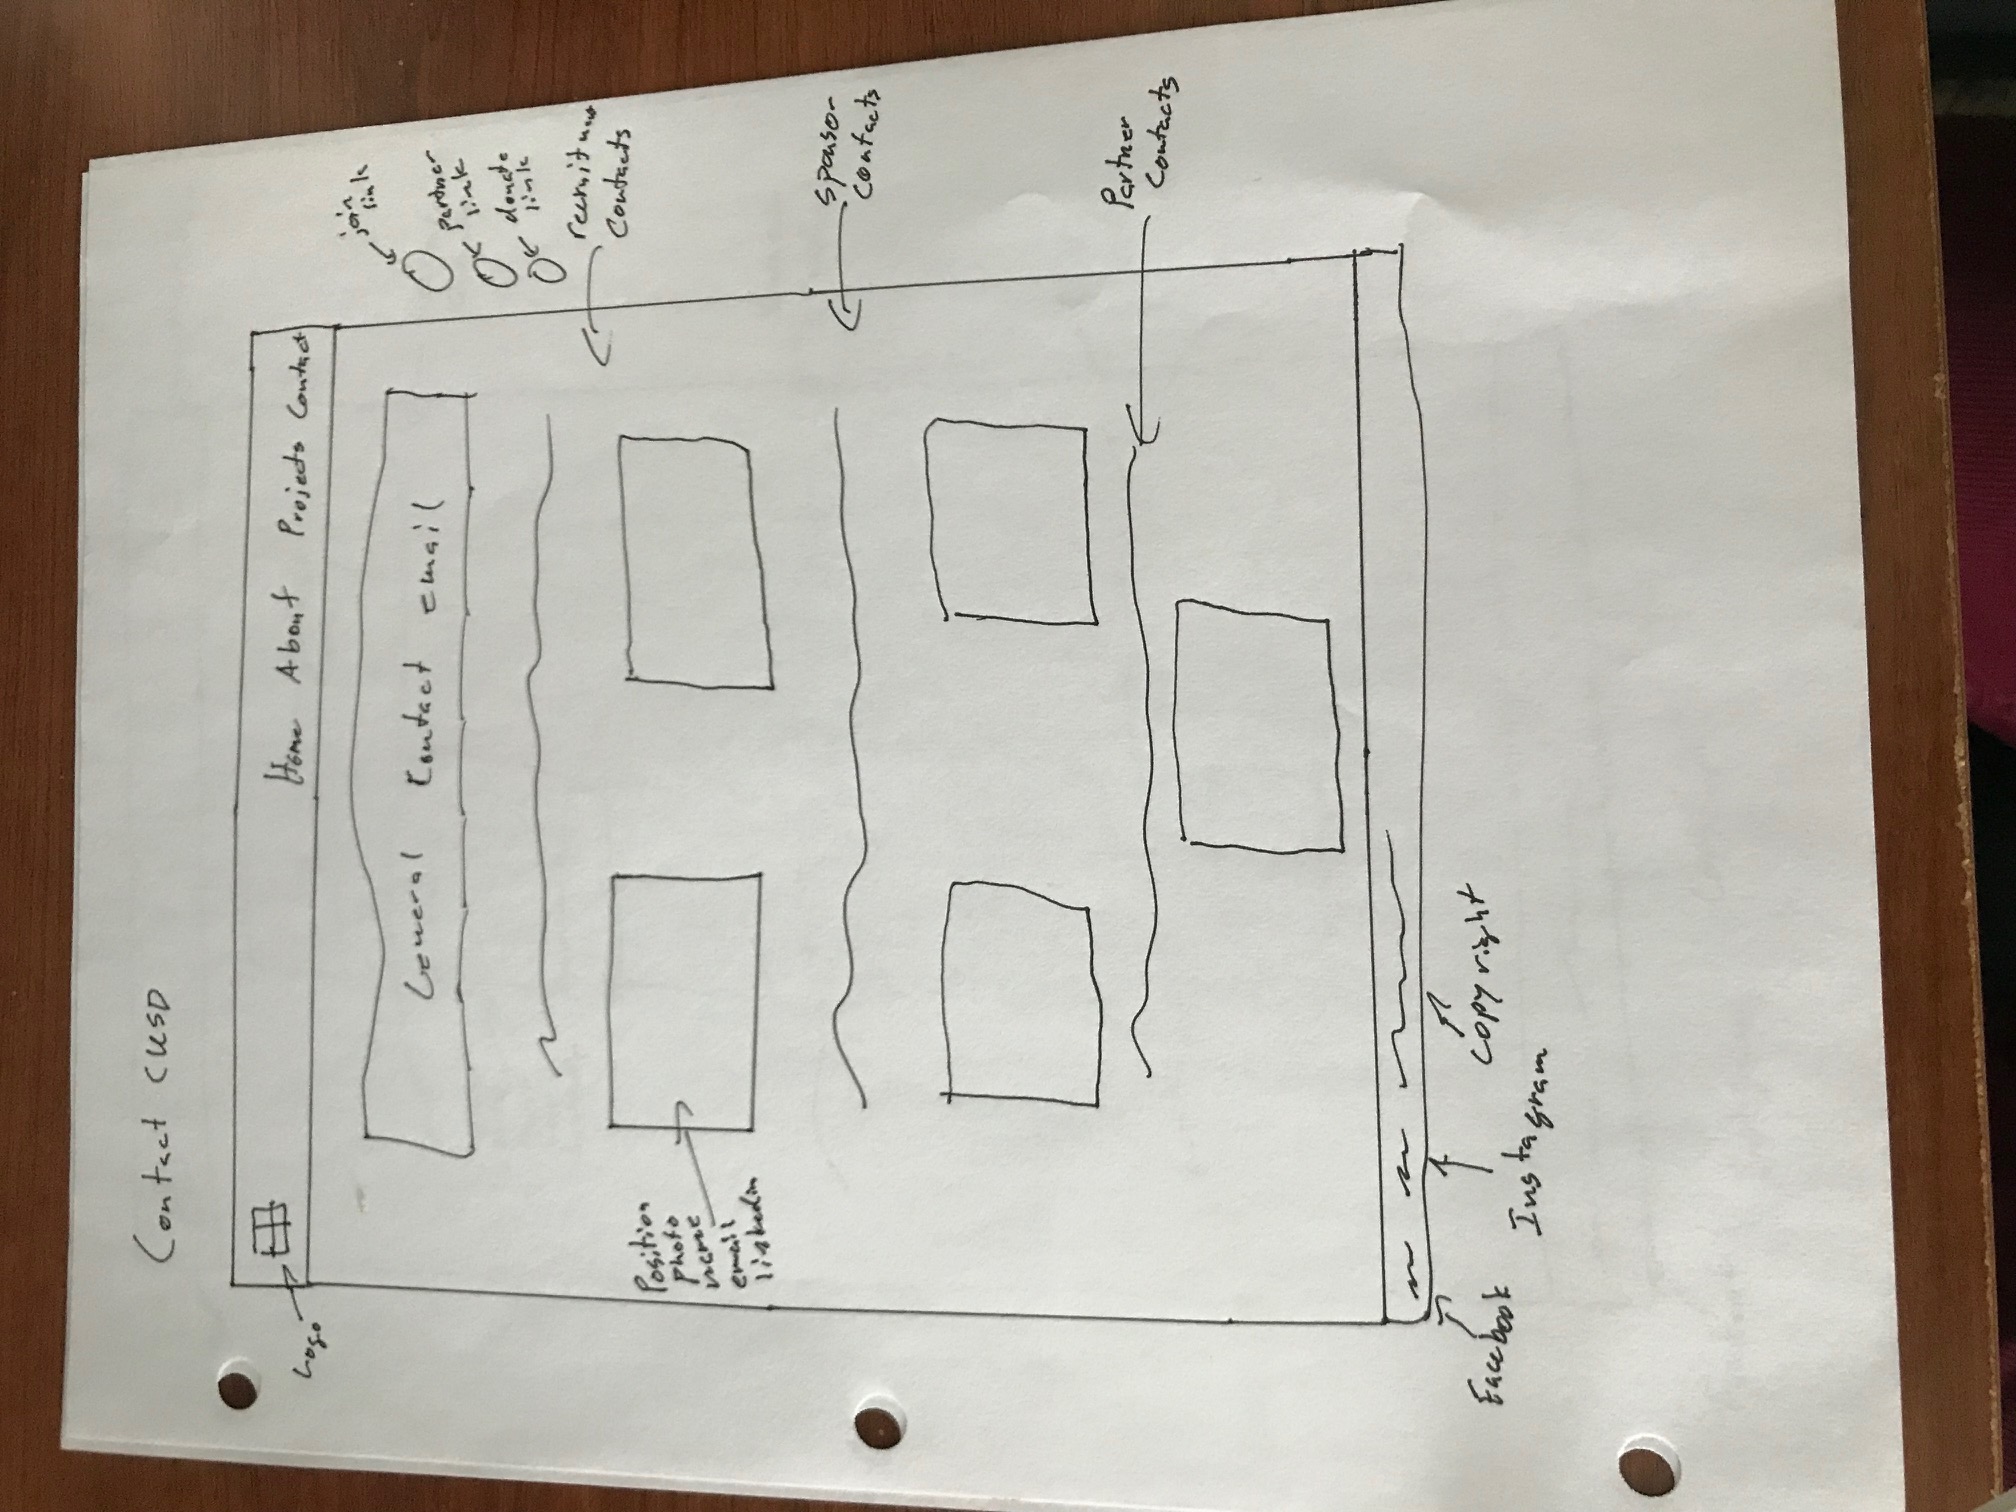 Contact CUSD
Logo
Home About Projects Contact
join
link
General Contact email
partner
link
donate
link
recruitment
Contacts
Position
photo
name
email
linkedin
Sponsor
Contacts
Partner
Contacts
Facebook
Instagram
Copyright